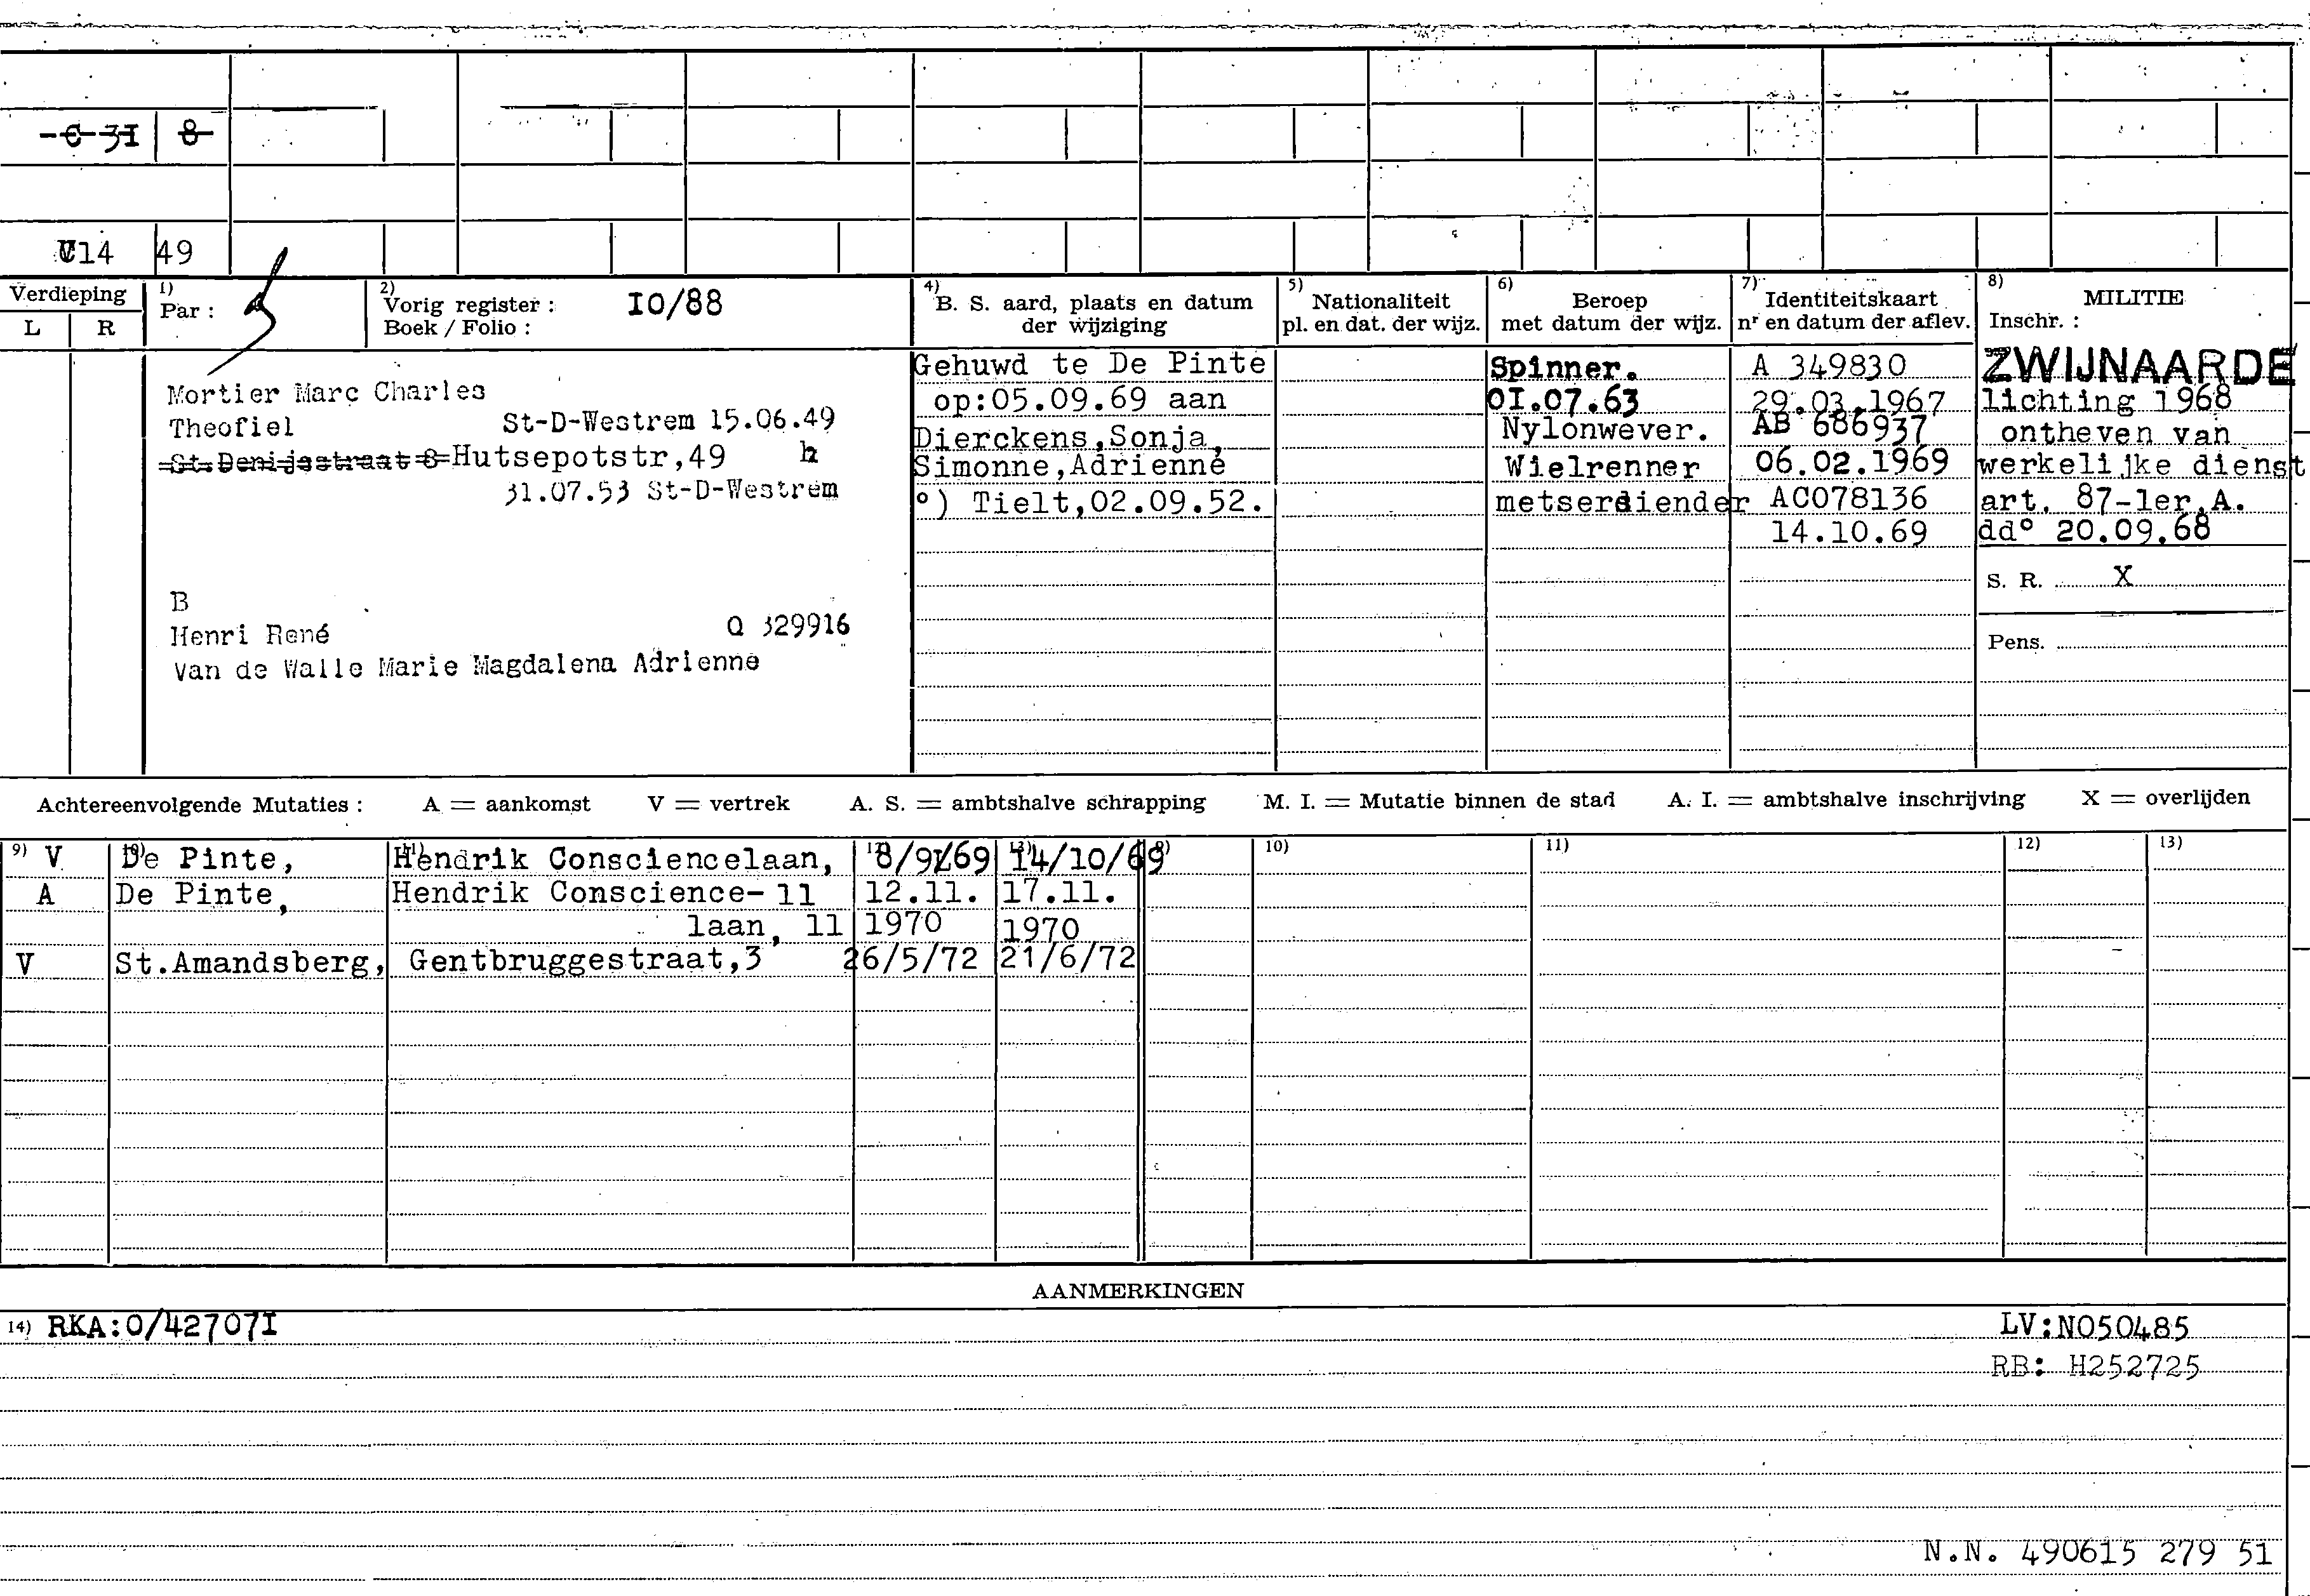 -C-3I 8
V14 49
Verdieping
L R
1) Par :
2) Vorig register : IO/88
Boek / Folio :
4) B. S. aard, plaats en datum
der wijziging
5) Nationaliteit
pl. en dat. der wijz.
6) Beroep
met datum der wijz.
7) Identiteitskaart
nr en datum der aflev.
8) MILITIE
Inschr. :
Mortier Marc Charles
Theofiel St-D-Westrem 15.06.49
St-Denijsstraat 8 Hutsepotstr,49 h
31.07.53 St-D-Westrem
B
Henri René Q 329916
Van de Walle Marie Magdalena Adrienne
Gehuwd te De Pinte
op:05.09.69 aan
Dierckens,Sonja,
Simonne,Adrienne
°) Tielt,02.09.52.
Spinner.
OI.07.63
Nylonwever.
Wielrenner
metserdiender
A 349830
29.03.1967
AB 686937
06.02.1969
AC078136
14.10.69
ZWIJNAARDE
lichting 1968
ontheven van
werkelijke dienst
art. 87-1er.A.
dd° 20.09.68
S. R. X
Pens.
Achtereenvolgende Mutaties : A = aankomst V = vertrek A. S. = ambtshalve schrapping M. I. = Mutatie binnen de stad A. I. = ambtshalve inschrijving X = overlijden
9) 10) 11) 12) 13) 9) 10) 11) 12) 13)
V De Pinte, Hendrik Consciencelaan, 8/9/69 14/10/69
A De Pinte, Hendrik Conscience- 11 12.11. 17.11.
laan, 11 1970 1970
V St.Amandsberg, Gentbruggestraat,3 26/5/72 21/6/72
AANMERKINGEN
14) RKA:O/42707I LV:N050485
RB: H252725
N.N. 490615 279 51